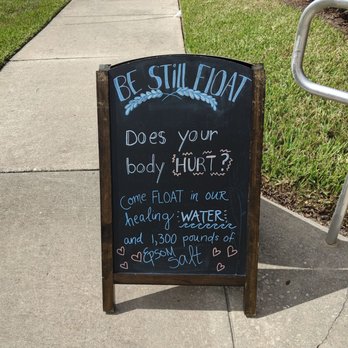 BE STill FlOAT
Does your
body HURT?
Come FLOAT in our
healing WATER
and 1,300 pounds of
EPSOM
Salt